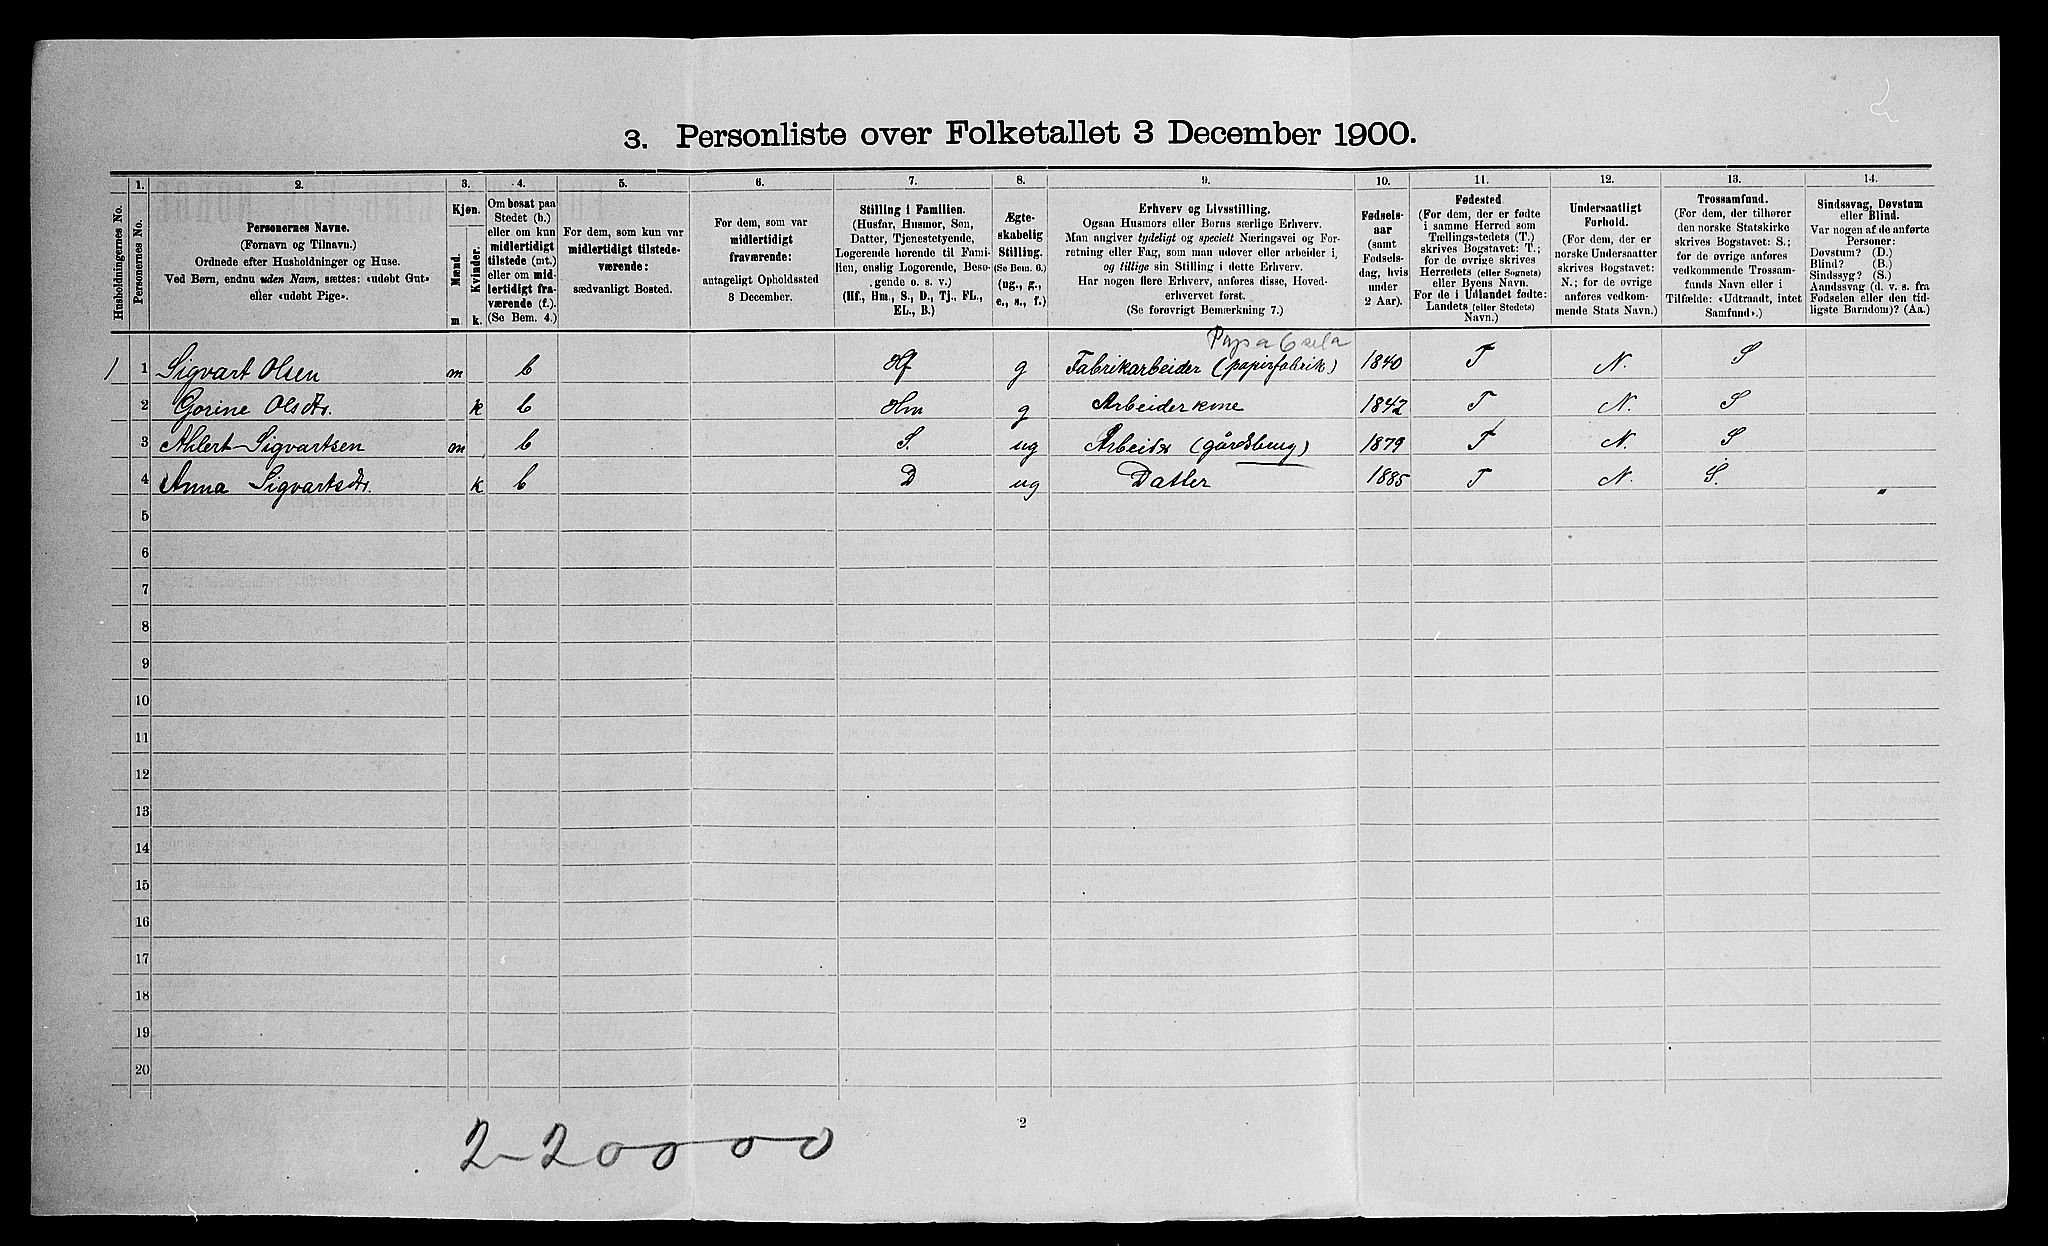 3. Personliste over Folketallet 3 December 1900.
Husholdningernes No.
1.
Personernes No.
2.
Personernes Navne.
(Fornavn og Tilnavn.)
Ordnede efter Husholdninger og Huse.
Ved Børn, endnu uden Navn, sættes: «udøbt Gut»
eller «udøbt Pige».
3.
Kjøn.
Mænd.
Kvinder.
m
k.
4.
Om bosat paa
Stedet (b.)
eller om kun
midlertidigt
tilstede (mt.)
eller om mid-
lertidigt fra-
værende (f.).
(Se Bem. 4.)
5.
For dem, som kun var
midlertidigt tilstede-
værende:
sædvanligt Bosted.
6.
For dem, som var
midlertidigt
fraværende:
antageligt Opholdssted
3 December.
7.
Stilling i Familien.
(Husfar, Husmor, Søn,
Datter, Tjenestetyende,
Logerende hørende til Fami-
lien, enslig Logerende, Besø-
gende o. s. v.)
(Hf., Hm., S., D., Tj., FL.,
EL., B.)
8.
Ægte-
skabelig
Stilling.
(Se Bem. 6.)
(ug., g.,
e., s., f.)
9.
Erhverv og Livsstilling.
Ogsaa Husmors eller Børns særlige Erhverv.
Man angiver tydeligt og specielt Næringsvei og For-
retning eller Fag, som man udøver eller arbeider i,
og tillige sin Stilling i dette Erhverv.
Har nogen flere Erhverv, anføres disse, Hoved-
erhvervet først.
(Se forøvrigt Bemærkning 7.)
10.
Fødsels-
aar
(samt
Fødsels-
dag, hvis
under
2 Aar).
11.
Fødested
(For dem, der er fødte
i samme Herred som
Tællings-stedets (T.)
skrives Bogstavet: T.;
for de øvrige skrives
Herredets (eller Sognets)
eller Byens Navn.
For de i Udlandet fødte:
Landets (eller Stedets)
Navn.)
12.
Undersaatligt
Forhold.
(For dem, der er
norske Undersaatter
skrives Bogstavet:
N.; for de øvrige
anføres vedkom-
mende Stats Navn.)
13.
Trossamfund.
(For dem, der tilhører
den norske Statskirke
skrives Bogstavet: S.;
for de øvrige anføres
vedkommende Trossam-
funds Navn eller i
Tilfælde: «Udtraadt, intet
Samfund».)
14.
Sindssvag, Døvstum
eller Blind.
Var nogen af de anførte
Personer:
Døvstum? (D.)
Blind? (B.)
Sindssyg? (S.)
Aandssvag (d. v. s. fra
Fødselen eller den tid-
ligste Barndom)? (Aa.)
1 1 Sigvart Olsen m b Hf g Fabrikarbeider (papirfabrik.) 1840 T N. S
2 Gorine Olsdtr. k b Hm g Arbeiderkone 1842 T N. S
3 Ahlert Sigvartsen m b S. ug Arbeider (gårdsbrug) 1879 T N. S
4 Anna Sigvartsdtr. k b D ug Datter 1885 T N. S.
5
6
7
8
9
10
11
12
13
14
15
16
17
18
19
20
2
2-20000